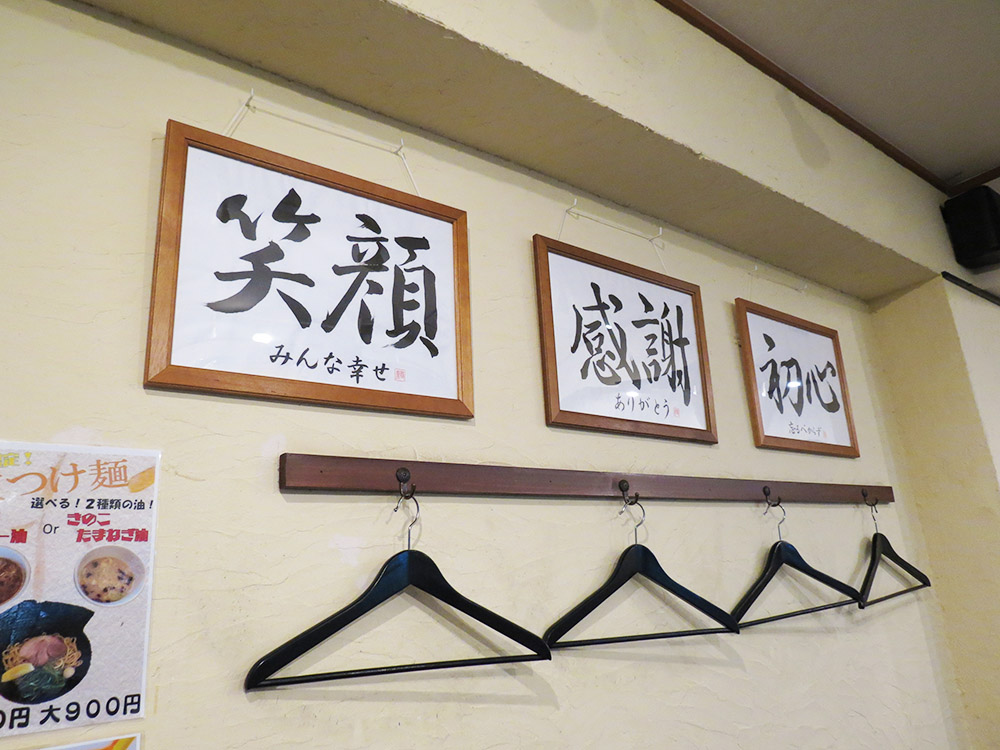 笑顔
みんな幸せ
感謝
ありがとう
初心
忘るべからず
つけ麺
選べる！2種類の油！
ー油
Or
きのこ
たまねぎ油
0円 大900円